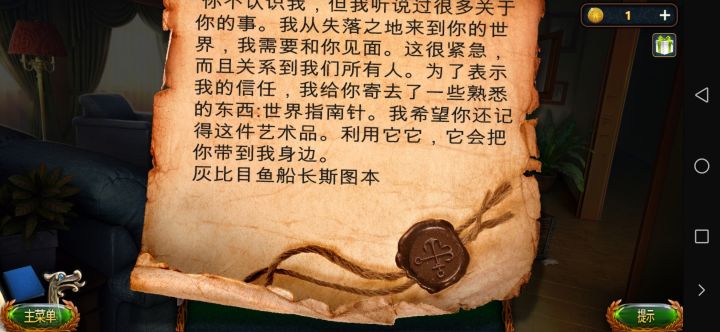 你不认识我，但我听说过很多关于
你的事。我从失落之地来到你的世
界，我需要和你见面。这很紧急，
而且关系到我们所有人。为了表示
我的信任，我给你寄去了一些熟悉
的东西:世界指南针。我希望你还记
得这件艺术品。利用它它，它会把
你带到我身边。
灰比目鱼船长斯图本
1
主菜单
提示